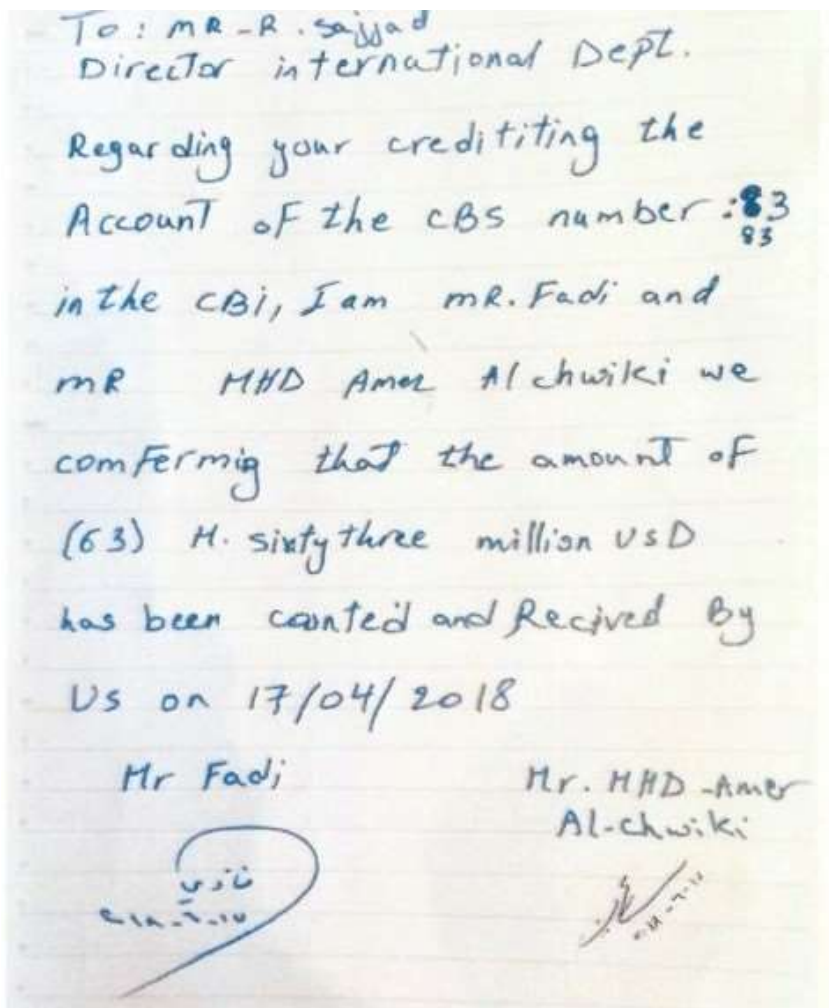 To : MR - R . Sajjad
Director international Dept.
Regarding your credititing the
Account of the CBS number : 83
83
in the CBi, I am mR. Fadi and
mR MHD Amer Al chwiki we
comfermig that the amount of
(63) M. sixty three million USD
has been counted and Recived By
Us on 17/04/2018
Mr Fadi
Mr. MHD - Amer
Al-chwiki
فادي